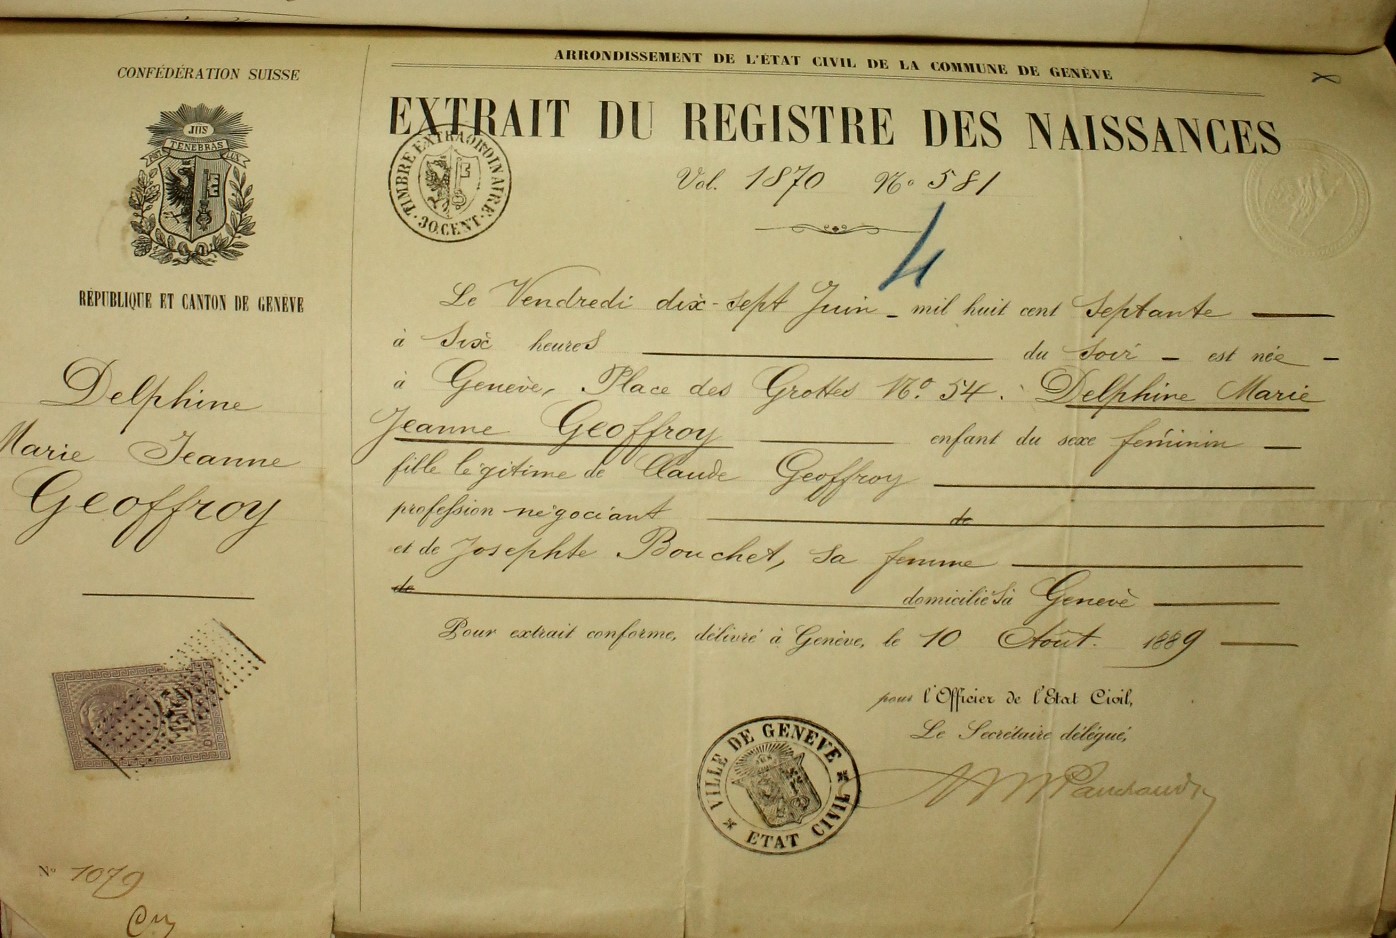 CONFÉDÉRATION SUISSE
JHS
POST TENEBRAS LUX
RÉPUBLIQUE ET CANTON DE GENÈVE
Delphine
Marie Jeanne
Geoffroy
No 1079
ARRONDISSEMENT DE L'ÉTAT CIVIL DE LA COMMUNE DE GENÈVE
EXTRAIT DU REGISTRE DES NAISSANCES
TIMBRE EXTRAORDINAIRE
30 CENT.
Vol. 1870 No 581
4
Le Vendredi dix-sept Juin - mil huit cent septante
à six heures du soir - est née -
à Genève, Place des Grottes No. 54. Delphine Marie
Jeanne Geoffroy enfant du sexe féminin
fille légitime de Claude Geoffroy
profession négociant de
et de Josephte Bouchet, sa femme
de domiciliés à Genève
Pour extrait conforme, délivré à Genève, le 10 Août. 1889
pour l'Officier de l'Etat Civil,
Le Secrétaire délégué,
VILLE DE GENEVE
ETAT CIVIL